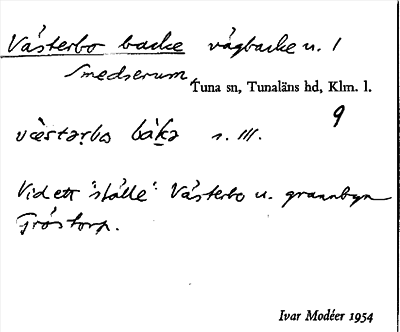 Västerbo backe vägbacke u. 1
Smedserum,
Tuna sn, Tunaläns hd, Klm. l.
9
væstərbo bàkə s. III.
Vid ett "ställe" Västerbo u. grannbyn
Gröstorp.
Ivar Modéer 1954